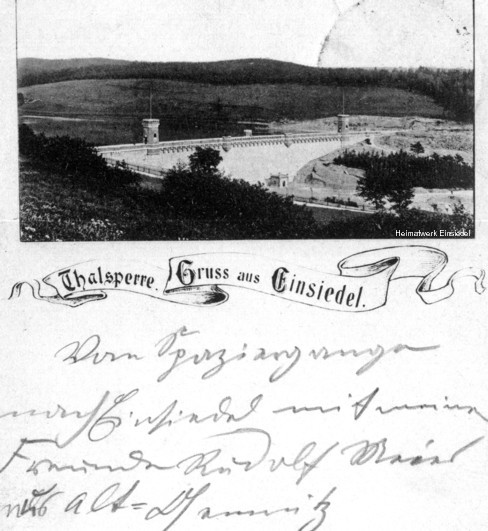 Heimatwerk Einsiedel
Thalsperre. Gruss aus Einsiedel.
Vom Spaziergange
nach Einsiedel mit meine
Freunde Rudolf Meier
aus Alt=Chemnitz